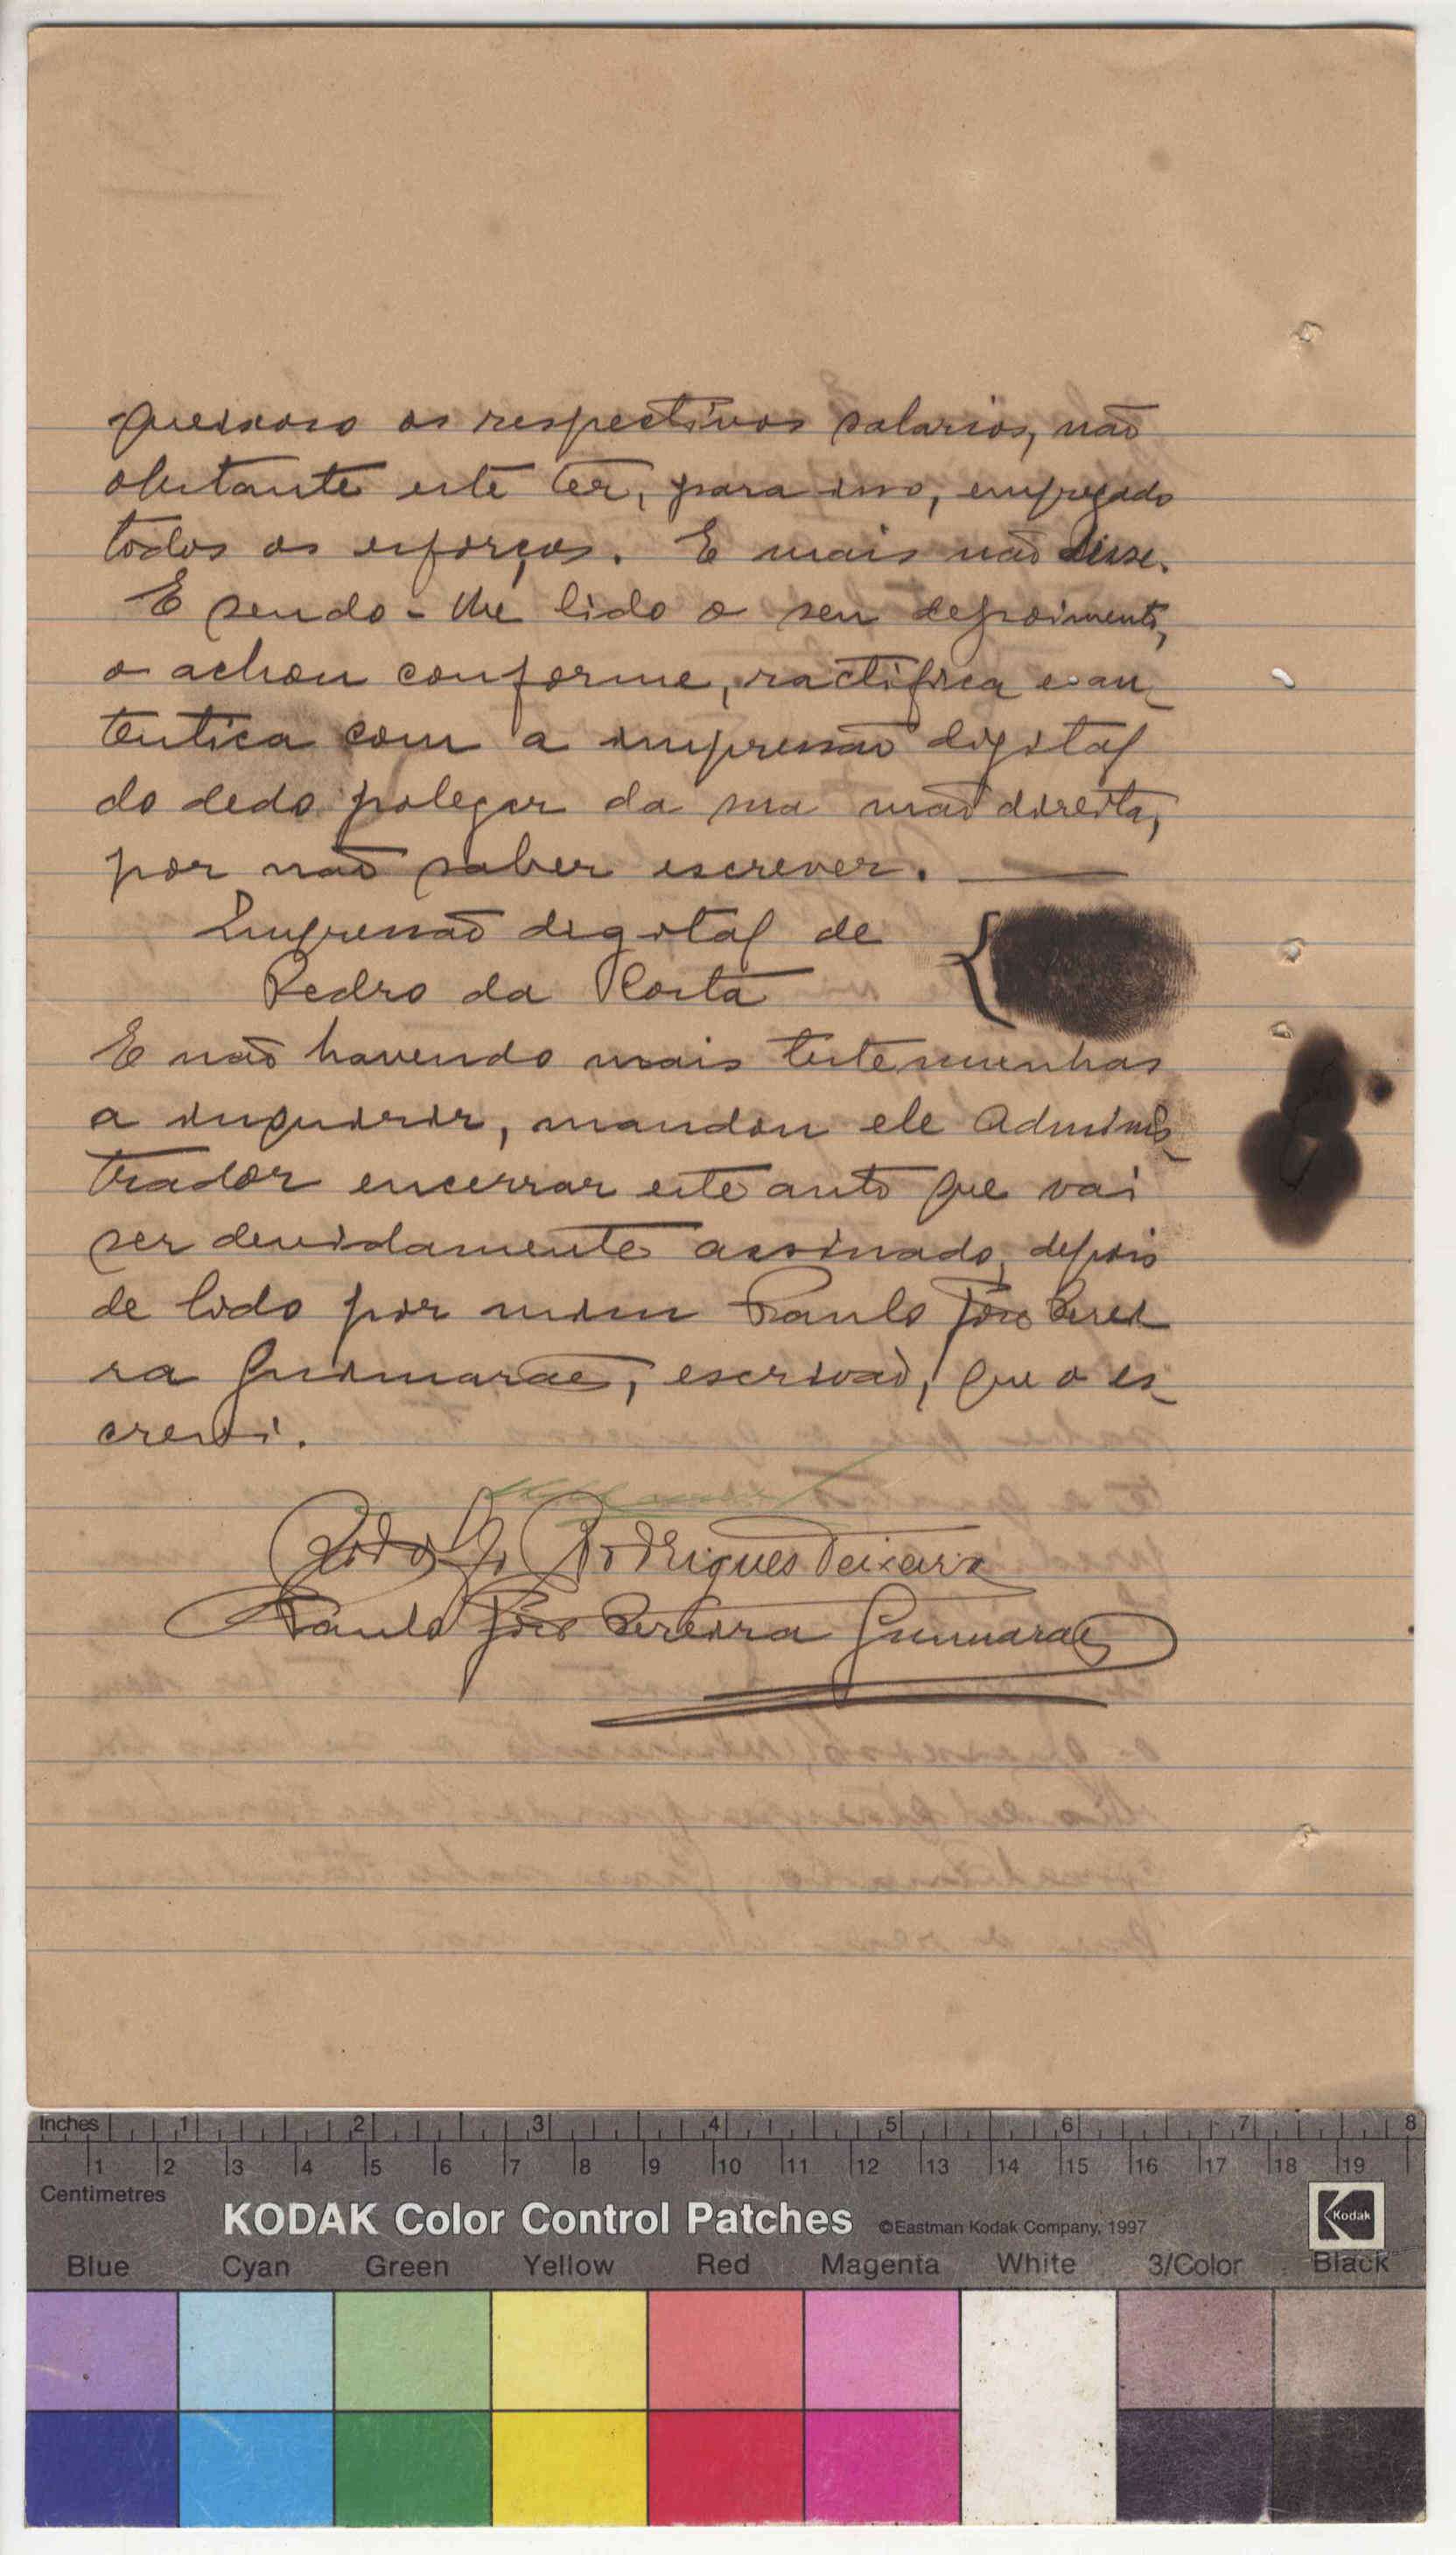 queixoso os respectivos salarios, não
obstante este ter, para isso, empregado
todos os esforços. E mais não disse.
E sendo-lhe lido o seu depoimento,
o achou conforme, ractifica e au-
tentica com a impressão digital
do dedo polegar da sua mão direita,
por não saber escrever.
Impressão digital de
Pedro da Costa
E não havendo mais testemunhas
a inquirir, mandou ele Adminis-
trador encerrar este auto que vai
ser devidamente assinado, depois
de lido por mim Paulo José Perei
ra Guimarães, escrivão, que o es-
crevi.
Rodolfo Rodrigues Teixeira
Paulo José Pereira Guimarães
Inches 1 2 3 4 5 6 7 8
1 2 3 4 5 6 7 8 9 10 11 12 13 14 15 16 17 18 19
Centimetres
KODAK Color Control Patches ©Eastman Kodak Company, 1997 Kodak
Blue Cyan Green Yellow Red Magenta White 3/Color Black